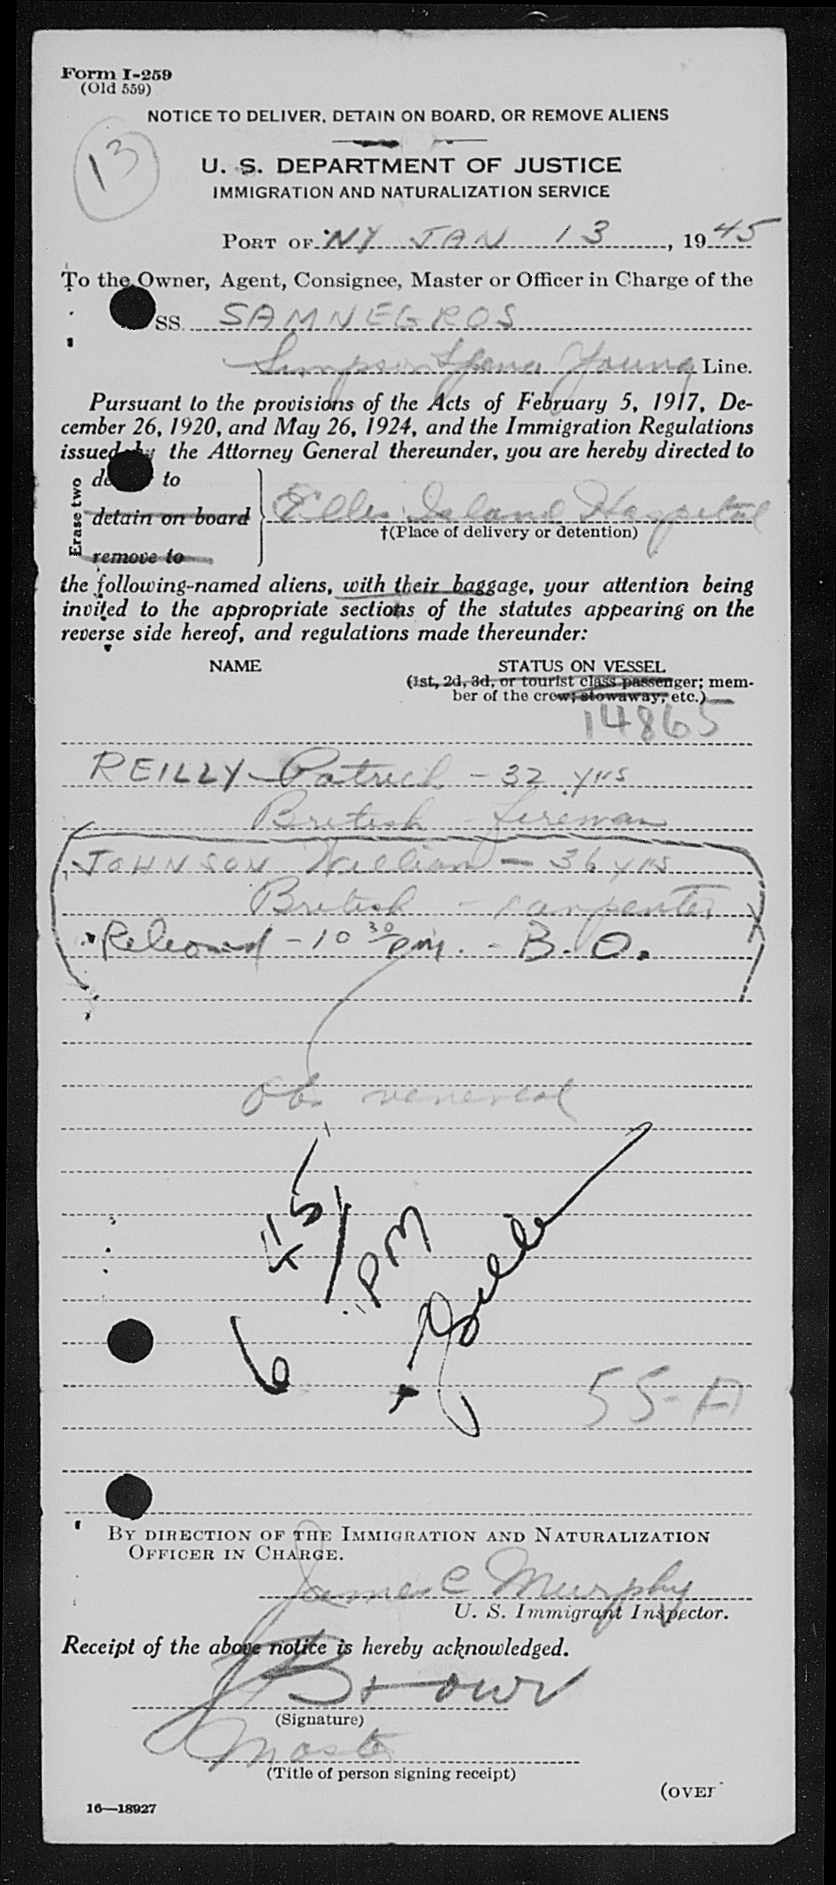 Form I-259
(Old 559)
NOTICE TO DELIVER, DETAIN ON BOARD, OR REMOVE ALIENS
13
U. S. DEPARTMENT OF JUSTICE
IMMIGRATION AND NATURALIZATION SERVICE
PORT OF NY JAN 13, 1945
To the Owner, Agent, Consignee, Master or Officer in Charge of the
SS. SAMNEGROS
Simpson Spence Young Line.
Pursuant to the provisions of the Acts of February 5, 1917, De-
cember 26, 1920, and May 26, 1924, and the Immigration Regulations
issued by the Attorney General thereunder, you are hereby directed to
Erase two
to
detain on board
Ellis Island Hospital
†(Place of delivery or detention)
remove to
the following-named aliens, with their baggage, your attention being
invited to the appropriate sections of the statutes appearing on the
reverse side hereof, and regulations made thereunder:
NAME
STATUS ON VESSEL
(1st, 2d, 3d, or tourist class passenger; mem-
ber of the crew; stowaway; etc.)
14865
REILLY - Patrick - 32 yrs
British - fireman
JOHNSON William - 36 yrs
British - carpenter
Released - 10 30 pm. - B. O.
Ob venereal
6 45 PM
55-A
BY DIRECTION OF THE IMMIGRATION AND NATURALIZATION
OFFICER IN CHARGE.
James C Murphy
U. S. Immigrant Inspector.
Receipt of the above notice is hereby acknowledged.
J Brown
(Signature)
Master
(Title of person signing receipt)
(OVER
16—18927